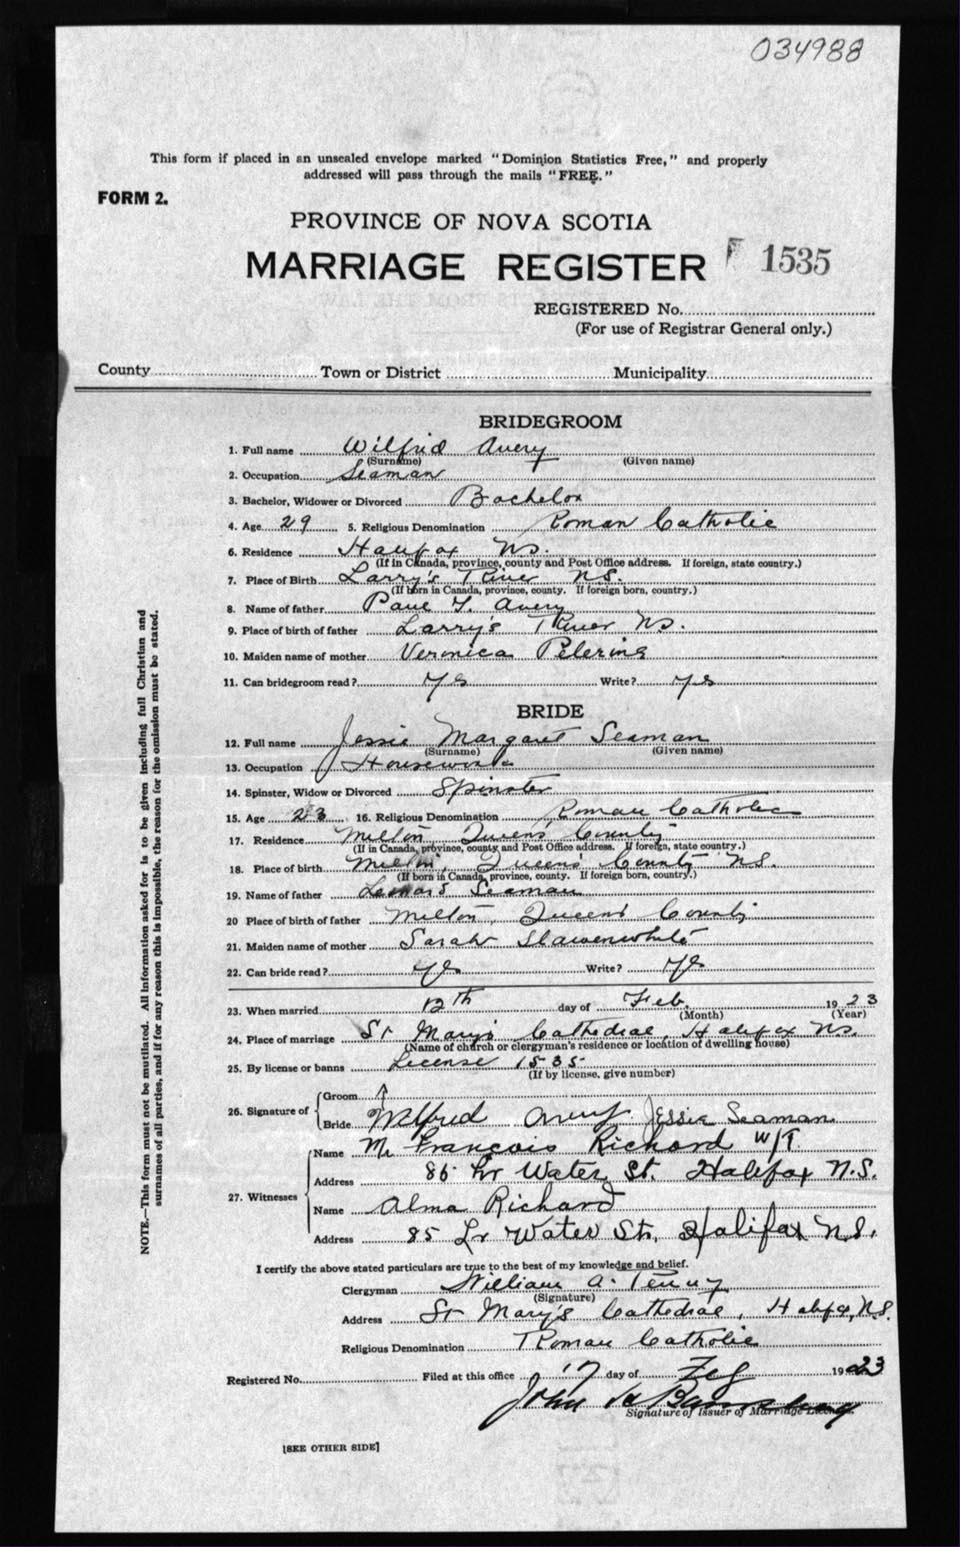 034988
This form if placed in an unsealed envelope marked "Dominion Statistics Free," and properly
addressed will pass through the mails "FREE."
FORM 2.
PROVINCE OF NOVA SCOTIA
MARRIAGE REGISTER F 1535
REGISTERED No.
(For use of Registrar General only.)
County Town or District Municipality
BRIDEGROOM
1. Full name Wilfrid Avery
(Surname) (Given name)
2. Occupation Seaman
3. Bachelor, Widower or Divorced Bachelor
4. Age 29 5. Religious Denomination Roman Catholic
6. Residence Halifax NS.
(If in Canada, province, county and Post Office address. If foreign, state country.)
7. Place of Birth Larry's River NS.
(If born in Canada, province, county. If foreign born, country.)
8. Name of father Paul F. Avery
9. Place of birth of father Larry's River NS.
10. Maiden name of mother Veronica Pelerine
11. Can bridegroom read? Yes Write? Yes
BRIDE
12. Full name Jessie Margaret Seaman
(Surname) (Given name)
13. Occupation Housework
14. Spinster, Widow or Divorced Spinster
15. Age 23 16. Religious Denomination Roman Catholic
17. Residence Milton, Queens County
(If in Canada, province, county and Post Office address. If foreign, state country.)
18. Place of birth Milton, Queens County NS.
(If born in Canada, province, county. If foreign born, country.)
19. Name of father Leonard Seaman
20 Place of birth of father Milton, Queens County
21. Maiden name of mother Sarah Slawenwhite
22. Can bride read? Yes Write? Yes
23. When married 12th day of Feb. 1923
(Month) (Year)
24. Place of marriage St Mary's Cathedral, Halifax NS.
(Name of church or clergyman's residence or location of dwelling house)
25. By license or banns License 1535
(If by license, give number)
26. Signature of Groom
Bride Wilfred Avery Jessie Seaman
27. Witnesses Name M. Francois Richard
Address 85 Lr Water St. Halifax N.S.
Name Alma Richard
Address 85 Lr Water St, Halifax N.S.
I certify the above stated particulars are true to the best of my knowledge and belief.
Clergyman William A. Penny
(Signature)
Address St Mary's Cathedral, Halifax, N.S.
Religious Denomination Roman Catholic
Registered No. Filed at this office 17 day of Feb 1923
John
Signature of Issuer of Marriage License.
[SEE OTHER SIDE]
NOTE.—This form must not be mutilated. All information asked for is to be given including full Christian and
surnames of all parties, and if for any reason this is impossible, the reason for the omission must be stated.